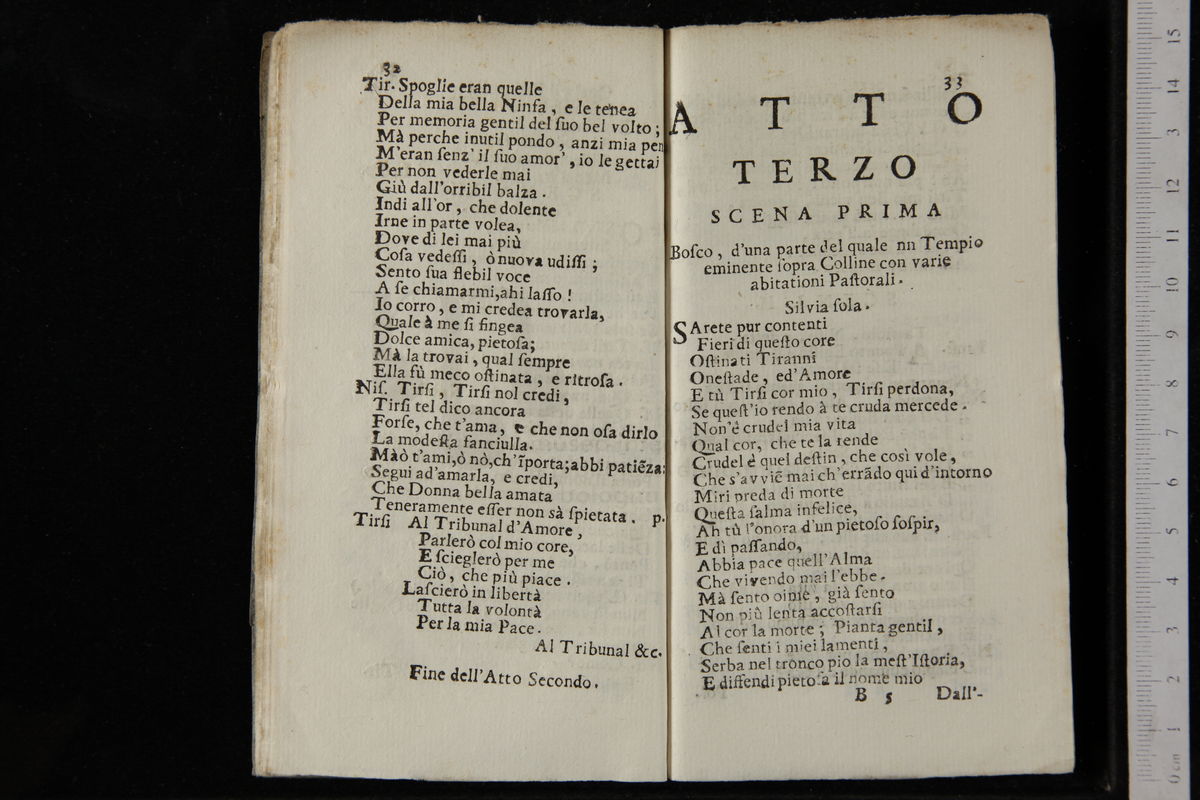 32
Tir. Spoglie eran quelle
Della mia bella Ninfa, e le tenea
Per memoria gentil del ſuo bel volto;
Mà perche inutil pondo, anzi mia pen
M'eran ſenz' il ſuo amor', io le gettai
Per non vederle mai
Giù dall'orribil balza.
Indi all'or, che dolente
Irne in parte volea,
Dove di lei mai più
Coſa vedeſſi, ò nuova udiſſi;
Sento ſua flebil voce
A ſe chiamarmi, ahi laſſo!
Io corro, e mi credea trovarla,
Quale à me ſi fingea
Dolce amica, pietoſa;
Mà la trovai, qual ſempre
Ella fù meco oſtinata, e ritroſa.
Niſ. Tirſi, Tirſi nol credi,
Tirſi tel dico ancora
Forſe, che t'ama, e che non oſa dirlo
La modeſta fanciulla.
Màò t'ami, ò nò, ch'ĩporta; abbi patiẽza:
Segui ad'amarla, e credi,
Che Donna bella amata
Teneramente eſſer non sà ſpietata. p.
Tirſi Al Tribunal d'Amore,
Parlerò col mio core,
E ſcieglerò per me
Ciò, che più piace.
Laſcierò in libertà
Tutta la volontà
Per la mia Pace.
Al Tribunal &c.
Fine dell'Atto Secondo.
33
ATTO
TERZO
SCENA PRIMA
Boſco, d'una parte del quale nn Tempio
eminente ſopra Colline con varie
abitationi Paſtorali.
Silvia ſola.
SArete pur contenti
Fieri di queſto core
Oſtinati Tiranni
Oneſtade, ed'Amore
E tù Tirſi cor mio, Tirſi perdona,
Se queſt'io rendo à te cruda mercede.
Non'é crudel mia vita
Qual cor, che te la rende
Crudel é quel deſtin, che così vole,
Che s'avviẽ mai ch'errãdo qui d'intorno
Miri preda di morte
Queſta ſalma infelice,
Ah tù l'onora d'un pietoſo ſoſpir,
E dì paſſando,
Abbia pace quell'Alma
Che vivendo mai l'ebbe.
Mà ſento oimè, già ſento
Non più lenta accoſtarſi
Al cor la morte; Pianta gentil,
Che ſenti i miei lamenti,
Serba nel tronco pio la meſt'Iſtoria,
E diffendi pietoſa il nome mio
B 5 Dall'-
0 cm 1 2 3 4 5 6 7 8 9 10 11 12 3 14 15